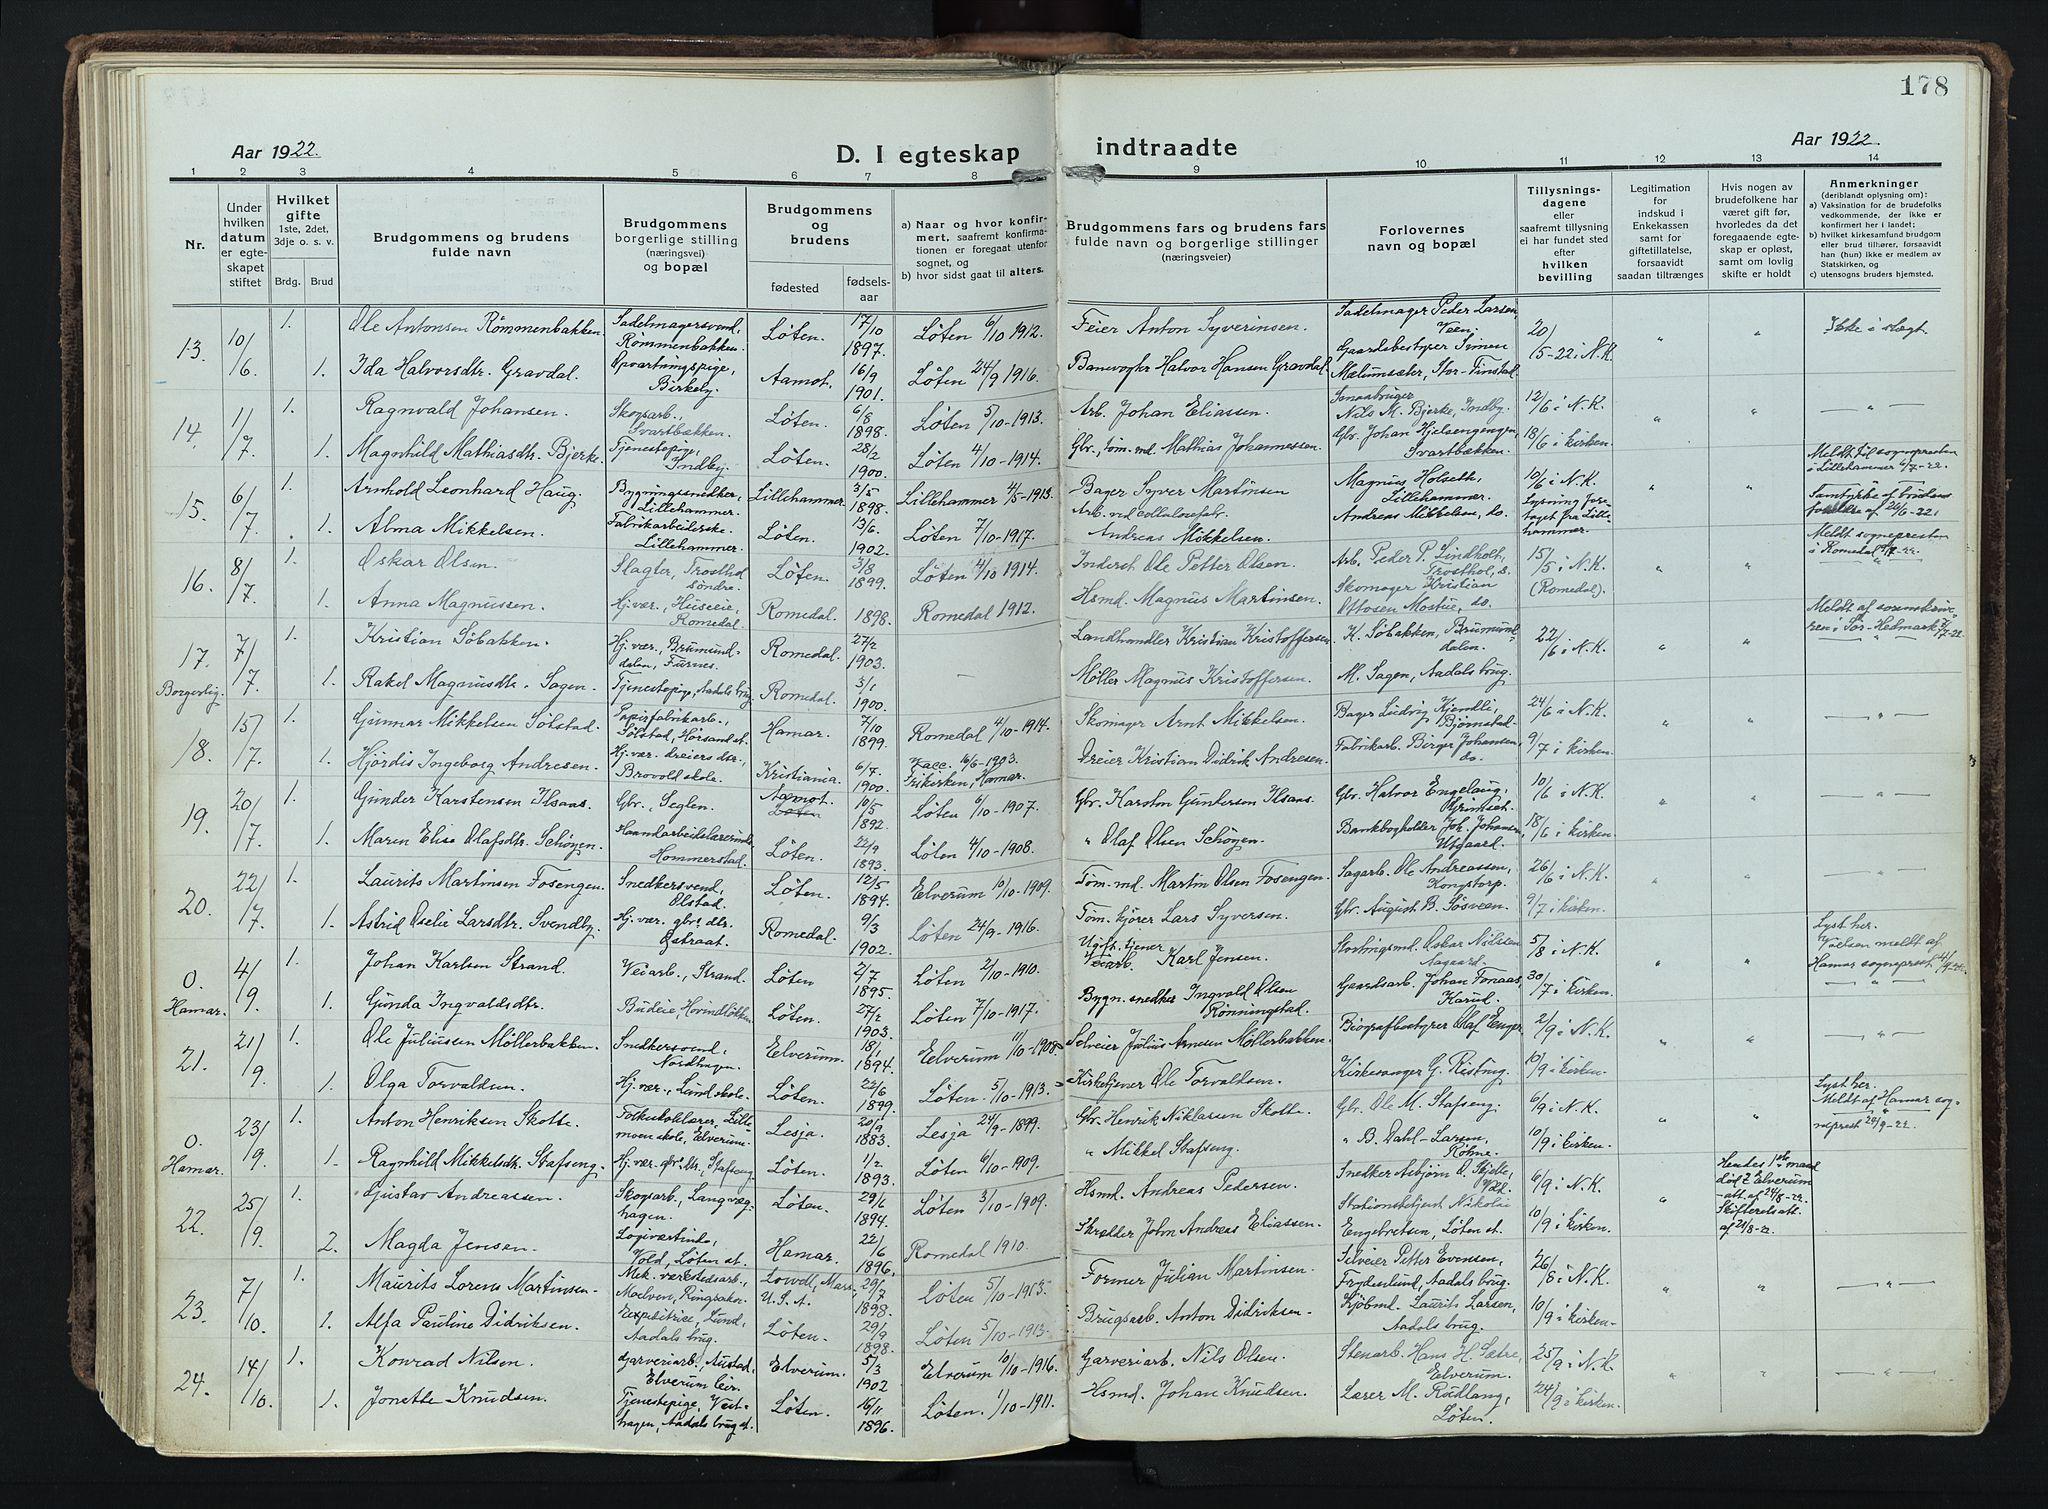 178
Aar 1922.
D. I egteskap
indtraadte
Aar 1922.
1 2 3 4 5 6 7 8 9 10 11 12 13 14
Nr.
Under hvilken datum er egteskapet stiftet
Hvilket gifte 1ste, 2det, 3dje o. s. v.
Brdg. Brud
Brudgommens og brudens fulde navn
Brudgommens borgerlige stilling (næringsvei) og bopæl
Brudgommens og brudens
fødested
fødselsaar
a) Naar og hvor konfirmert, saafremt konfirmationen er foregaat utenfor sognet, og
b) hvor sidst gaat til alters.
Brudgommens fars og brudens fars fulde navn og borgerlige stillinger (næringsveier)
Forlovernes navn og bopæl
Tillysningsdagene eller saafremt tillysning ei har fundet sted efter hvilken bevilling
Legitimation for indskud i Enkekassen samt for giftetillatelse, forsaavidt saadan tiltrænges
Hvis nogen av brudefolkene har været gift før, hvorledes da det foregaaende egteskap er opløst, samt om lovlig skifte er holdt
Anmerkninger (deriblandt oplysning om):
a) Vaksination for de brudefolks vedkommende, der ikke er konfirmert her i landet;
b) hvilket kirkesamfund brudgom eller brud tilhører, forsaavidt han (hun) ikke er medlem av Statskirken, og
c) utensogns bruders hjemsted.
13. 10/6 1. Ole Antonsen Rømmenbakken. Sadelmagersvend, Rømmenbakken. Løten. 17/10 1897. Løten 6/10 1912. Feier Anton Syverinsen. Sadelmager Peder Larsen, Veen. 20/5-22 i N.K. " " Ikke i slegt.
1. Ida Halvorsdtr. Gravdal. Opvartningspige, Birkeby. Aamot. 16/9 1901. Løten 24/9 1916. Banevogter Halvor Hansen Gravdal. Gaardsbestyrer Simen Mælumsæter, Stor-Finstad.
14. 1/7 1. Ragnvald Johansen. Skogsarb., Svartbækken. Løten. 6/8 1898. Løten 5/10-1913. Arb. Johan Eliassen. Smaabruger Nils M. Bjerke, Indby. 12/6 i N.K. " " — " —
1. Magnhild Mathiasdtr. Bjerke. Tjenestepige, Indby. Løten. 28/2 1900. Løten 4/10-1914. Gbr., tøm.md. Mathias Johannessen. Gbr. Johan Hjelsengengen, Svartbækken. 18/6 i kirken.
15. 6/7 1. Arnhold Leonhard Haug. Bygningssnedker, Lillehammer. Lillehammer. 3/5 1898. Lillehammer 4/5-1913. Bager Syver Martinsen Magnus Holseth, Lillehammer. 10/6 i N.K. " " Meldt til sognepresten i Lillehammer 6/7-22.
1. Alma Mikkelsen. Fabrikarbeiderske. Lillehammer. Løten. 13/6. 1902. Løten 7/10-1917. Arb. ved cellulosefabr. Andreas Mikkelsen. Andreas Mikkelsen, do. Lysning foretaget fra Lillehammer. Samtykke af brudens forældre af 26/6-22.
16. 8/7 1. Oskar Olsen. Slagter, Trosthol søndre. Løten. 3/8 1899. Løten 4/10 1914. Inderst Ole Petter Olsen. Arb. Peder P. Lindholt, Trosthol, s. 15/5 i N.K. (Romedal). " " Meldt sognepresten i Romedal — " —
1. Anna Magnussen. Hj.vær., Huseeie, Romedal. Romedal. 1898. Romedal 1912. Hsmd. Magnus Martinsen. Skomager Kristian Ottosen Mostue, do.
17. Borgerlig. 7/7 1. Kristian Søbakken. Hj. vær., Brumunddalen, Furnes. Romedal. 27/2 1903. Landhandler Kristian Kristoffersen K. Søbakken, Brumunddalen. 22/6 i N.K. " " Meldt af sorenskriveren i Sør-Hedmark — " —
1. Rakel Magnusdtr. Sagen. Tjenestepige, Aadals brug. Romedal. 3/1 1900. — Møller Magnus Kristoffersen. M. Sagen, Aadals brug.
18. 15/7 1. Gunnar Mikkelsen Sølstad. Papirfabrikarb., Sølstad, Hørsand st. Hamar. 7/10 1899. Romedal 4/10-1914. Skomager Arnt Mikkelsen. Bager Ludvig Kjendli, Bjørnstad. 24/6 i N.K. " " — " —
1. Hjørdis Ingeborg Andresen. Hj. vær. dreiers dtr., Brovold skole. Kristiania. 6/7. 1900. Vacc. 16/6-1903. Frikirken, Hamar. Dreier Kristian Didrik Andresen. Fabrikarb. Birger Johansen, do. 9/7 i kirken.
19. 20/7 1. Gunder Karstensen Ilsaas. Gbr., Seglen. Aamot. Løten 10/5 1892. Løten 6/10-1907. Gbr. Karsten Gundersen Ilsaas. Gbr. Halvor Engelaug, Grimset. 10/6 i N.K. " " — " —
1. Maren Elise Olafsdtr. Schøyen. Haandarbeidslærerinde, Hommerstad. Løten. 22/9 1893. Løten 4/10-1908. " Olaf Olsen Schøyen. Bankbogholder Joh. Johansen, Utgaard. 18/6 i kirken.
20. 22/7 1. Laurits Martinsen Fosengen. Snedkersvend, Ølstad. Løten. 12/5 1894. Elverum 10/10-1909. Tøm.md. Martin Olsen Fosengen. Sagarb. Ole Andreassen, Kongstorp. 26/6 i N.K. " " — " —
1. Astrid Oselie Larsdtr. Svendby. Hj. vær. gbr. dtr. Østraat. Romedal. 9/3 1902. Løten 24/9-1916. Tøm.kjører Lars Syversen. Gbr. August B. Søsveen. 9/7 i kirken.
0. Hamar. 4/9 1. Johan Karlsen Strand. Veiarb., Strand. Løten 2/7 1895. Løten 2/10-1910. Ugift tjener Veiarb. Karl Jensen. Stortingsmd. Oskar Nilssen Aagaard. 5/8 i N.K. " " Lyst her. Vielsen meldt af Hamar sogneprest — " —
1. Gunda Ingvaldsdtr. Budeie, Hovindløkken. Løten. 27/2 1903. Løten 7/10-1917. Bygn. snedker Ingvald Olsen Rønningstad. Gaardsarb. Johan Fonaas, Karud. 30/7 i kirken.
21. 21/9 1. Ole Juliussen Møllerbakken. Snedkersvend, Nordhagen. Elverum. 18/1 1894. Elverum 11/10-1908. Selveier Julius Arnesen Møllerbakken. Biografbestyrer Olaf Enger. 2/9 i N.K. " " — " —
1. Olga Torvaldsen. Hj. vær., Lund skole. Løten. 22/6 1899. Løten. 5/10-1913. Kirketjener Ole Torvaldsen. Kirkesanger G. Ristrug. 10/9 i kirken.
0. Hamar. 23/9 1. Anton Henriksen Skotte. Folkeskolelærer, Lillemoen skole, Elverum. Lesja. 20/9 1883. Lesja 24/9-1899. Gbr. Henrik Niklasen Skotte. Gbr. Ole M. Stafseng. 6/9 i N.K. " " Lyst her. Meldt af Hamar sogneprest 26/9-22.
1. Ragnhild Mikkelsdtr. Stafseng. Hj. vær. gbr. dtr., Stafseng. Løten. 1/2 1893. Løten 6/10-1909. " Mikkel Stafseng. " B. Dahl-Larsen, Røhne. 10/9 i kirken.
22. 25/9 1. Gustav Andreassen. Skogsarb., Langvæghagen. Løten. 29/6 1894. Løten 3/10-1909. Hsmd. Andreas Pedersen. Snedker Asbjørn O. Skjelle, 6/9 i N.K. " Hendes 1ste mand død Elverum - att. af 24/8-22. Skifteretsatt. af 21/8-22.
2. Magda Jensen. Logiværtinde, Vold, Løten st. Hamar. 22/6 1896. Romedal 1910. Skrædder John Andreas Eliassen. Stationsbetjent Nikolai Engebretsen, Løten st. 10/9 i kirken.
23. 7/10. 1. Maurits Lorens Martinsen. Mek. værkstedsarb., Moelven, Ringsaker. Lowell, Mass. U.S.A. 29/7 1898. Løten 5/10-1913. Former Julian Martinsen. Selveier Petter Evensen, Frydenlund, Aadals brug. 26/8 i N.K. " " — " —
1. Alfa Pauline Didriksen. Expeditrice, Lund, Aadals brug. Løten. 29/9 1898. Løten 5/10-1913. Brugsarb. Anton Didriksen. Kjøbmd. Laurits Larsen, Aadals brug. 10/9 i kirken.
24. 14/10. 1. Konrad Nilsen. Garveriarb., Austad, Elverum leir. Elverum. 5/3 1902 Elverum 10/10-1916. Garveriarb. Nils Olsen. Stenarb. Hans H. Sætre, Elverum. 25/9 i N.K. " " — " —
1. Jonette Knudsen. Tjenestepige, Vesthagen, Aadals brug st. Løten. 16/11 1896. Løten. 1/10-1911. Hsmd. Johan Knudsen. Lærer M. Rudlang, Løten. 24/9 i kirken.